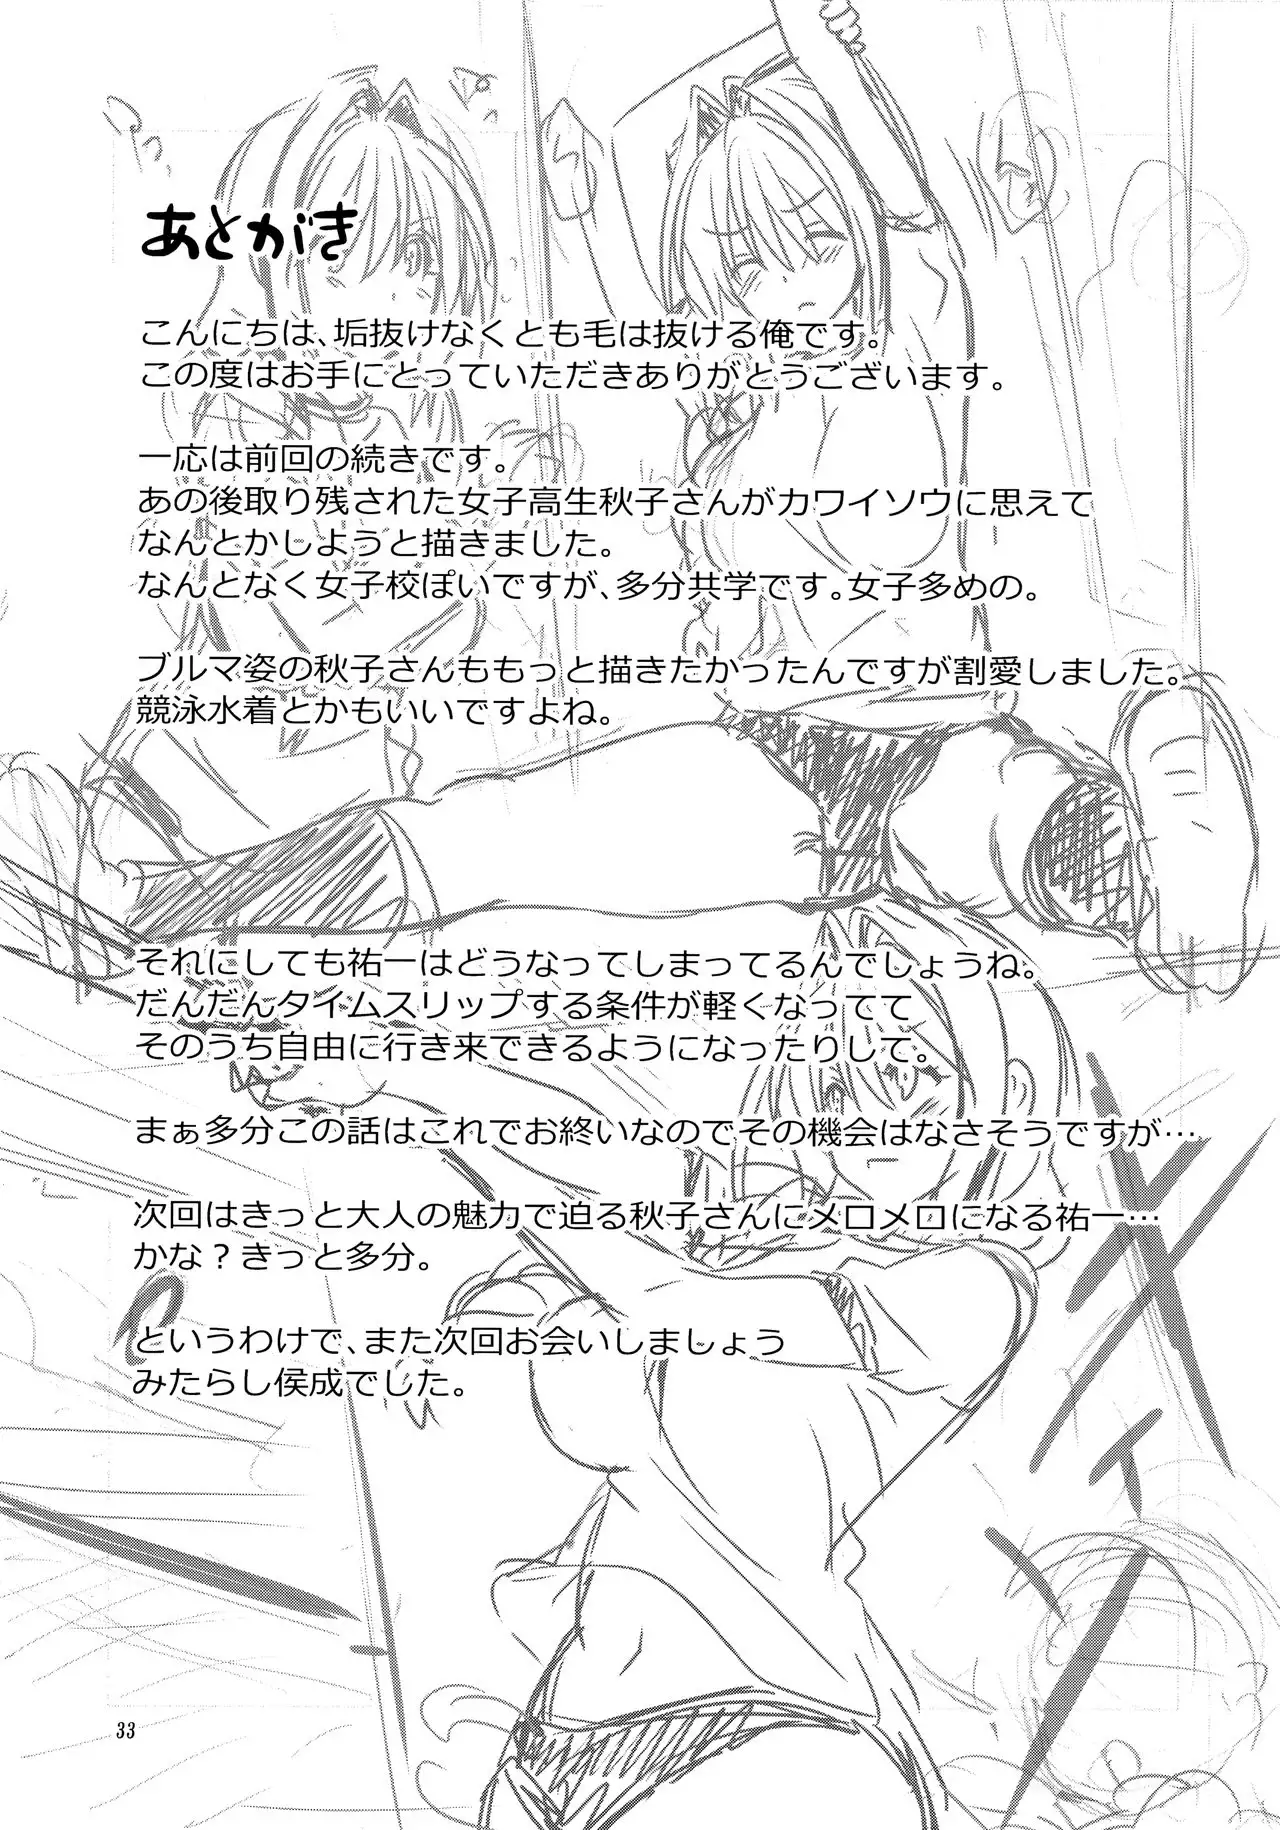 あとがき
こんにちは、垢抜けなくとも毛は抜ける俺です。
この度はお手にとっていただきありがとうございます。
一応は前回の続きです。
あの後取り残された女子高生秋子さんがカワイソウに思えて
なんとかしようと描きました。
なんとなく女子校ぽいですが、多分共学です。女子多めの。
ブルマ姿の秋子さんももっと描きたかったんですが割愛しました。
競泳水着とかもいいですよね。
それにしても祐一はどうなってしまってるんでしょうね。
だんだんタイムスリップする条件が軽くなってて
そのうち自由に行き来できるようになったりして。
まぁ多分この話はこれでお終いなのでその機会はなさそうですが…
次回はきっと大人の魅力で迫る秋子さんにメロメロになる祐一…
かな？きっと多分。
というわけで、また次回お会いしましょう
みたらし侯成でした。
33